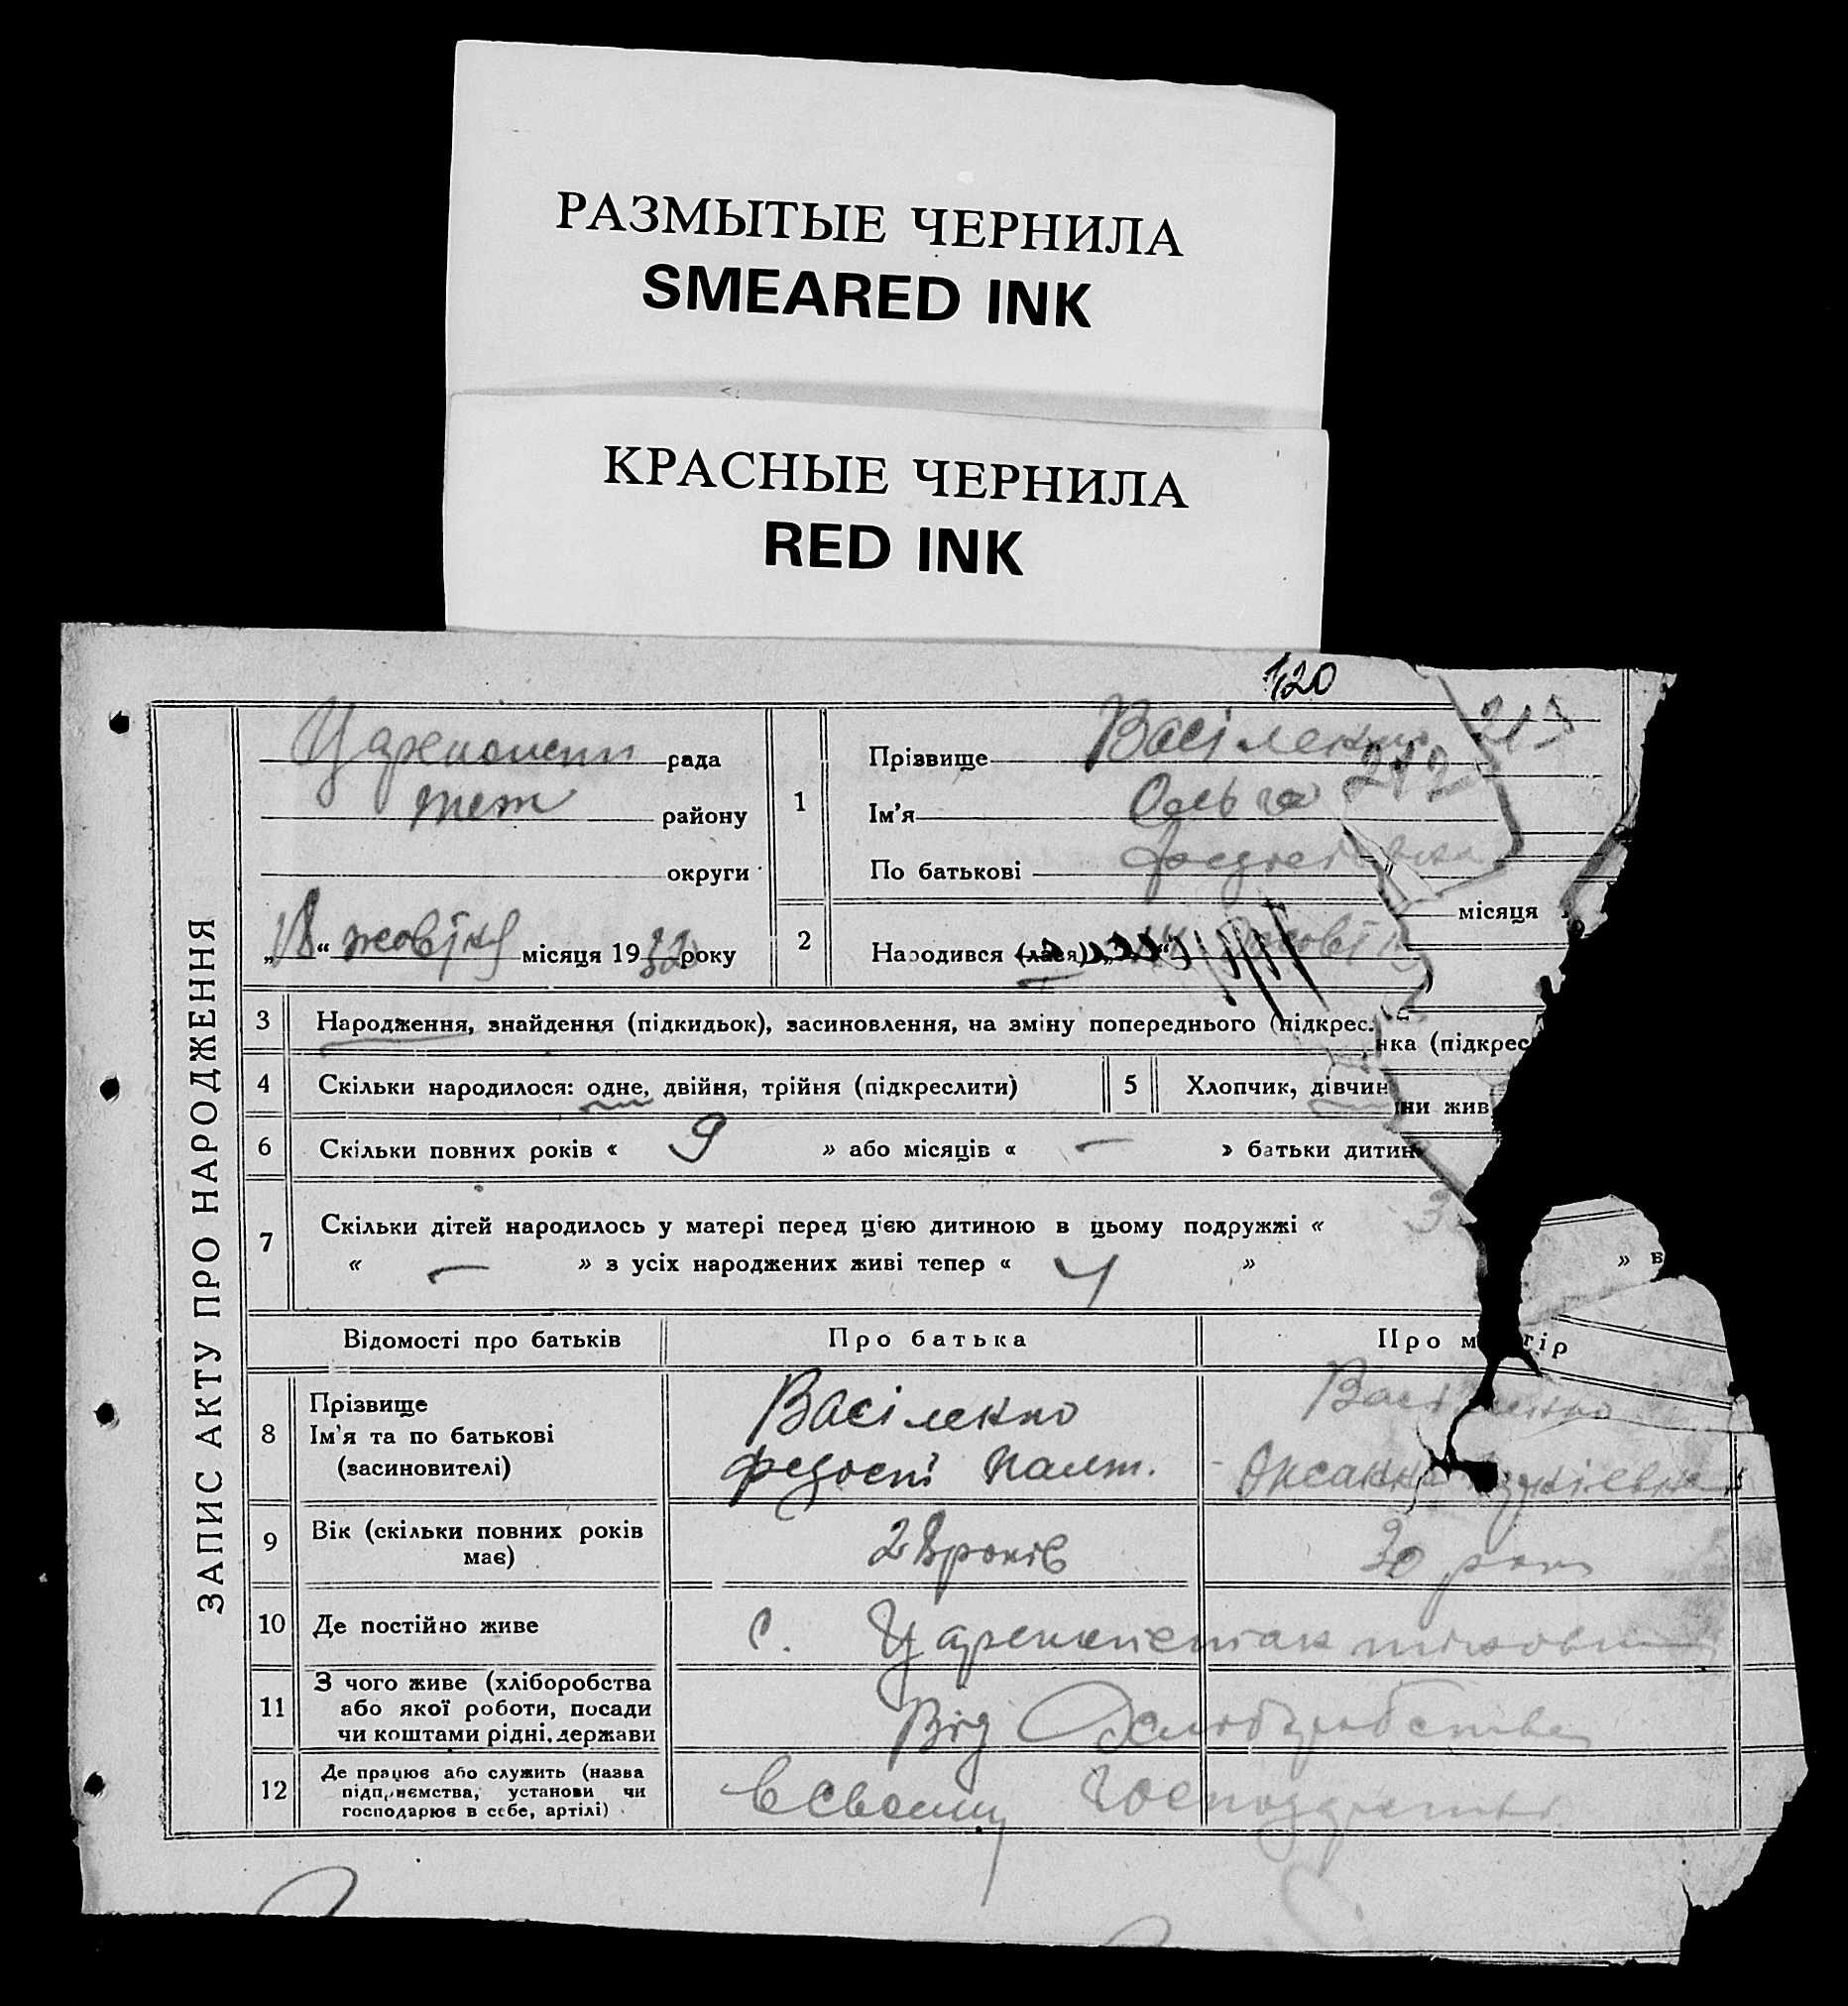 РАЗМЫТЫЕ ЧЕРНИЛА
SMEARED INK
КРАСНЫЕ ЧЕРНИЛА
RED INK
120
213
212
ЗАПИС АКТУ ПРО НАРОДЖЕННЯ
рада
району
округи
„18“ жовтня місяця 1932 року
1
Прізвище Васіленко
Ім'я Ольга
По батькові
2
Народився (лася) „
місяця
3 Народження, знайдення (підкидьок), засиновлення, на зміну попереднього (підкрес.
нка (підкрес
4 Скільки народилося: одне, двійня, трійня (підкреслити)
5 Хлопчик, дівчин
ни жив
6 Скільки повних років « 9 » або місяців « — » батьки дитин
7 Скільки дітей народилось у матері перед цією дитиною в цьому подружжі « 3
« — » з усіх народжених живі тепер « 4 »
» в
Відомості про батьків
Про батька
Про матір
8 Прізвище
Ім'я та по батькові
(засиновителі)
Васіленко
Федосій
Васіленко
Оксана
9 Вік (скільки повних років
має)
28 років
30 років
10 Де постійно живе
с.
11 З чого живе (хліборобства
або якої роботи, посади
чи коштами рідні, держави
Від
12 Де працює або служить (назва
підприємства, установи чи
господарює в себе, артілі)
в своєму господарстві